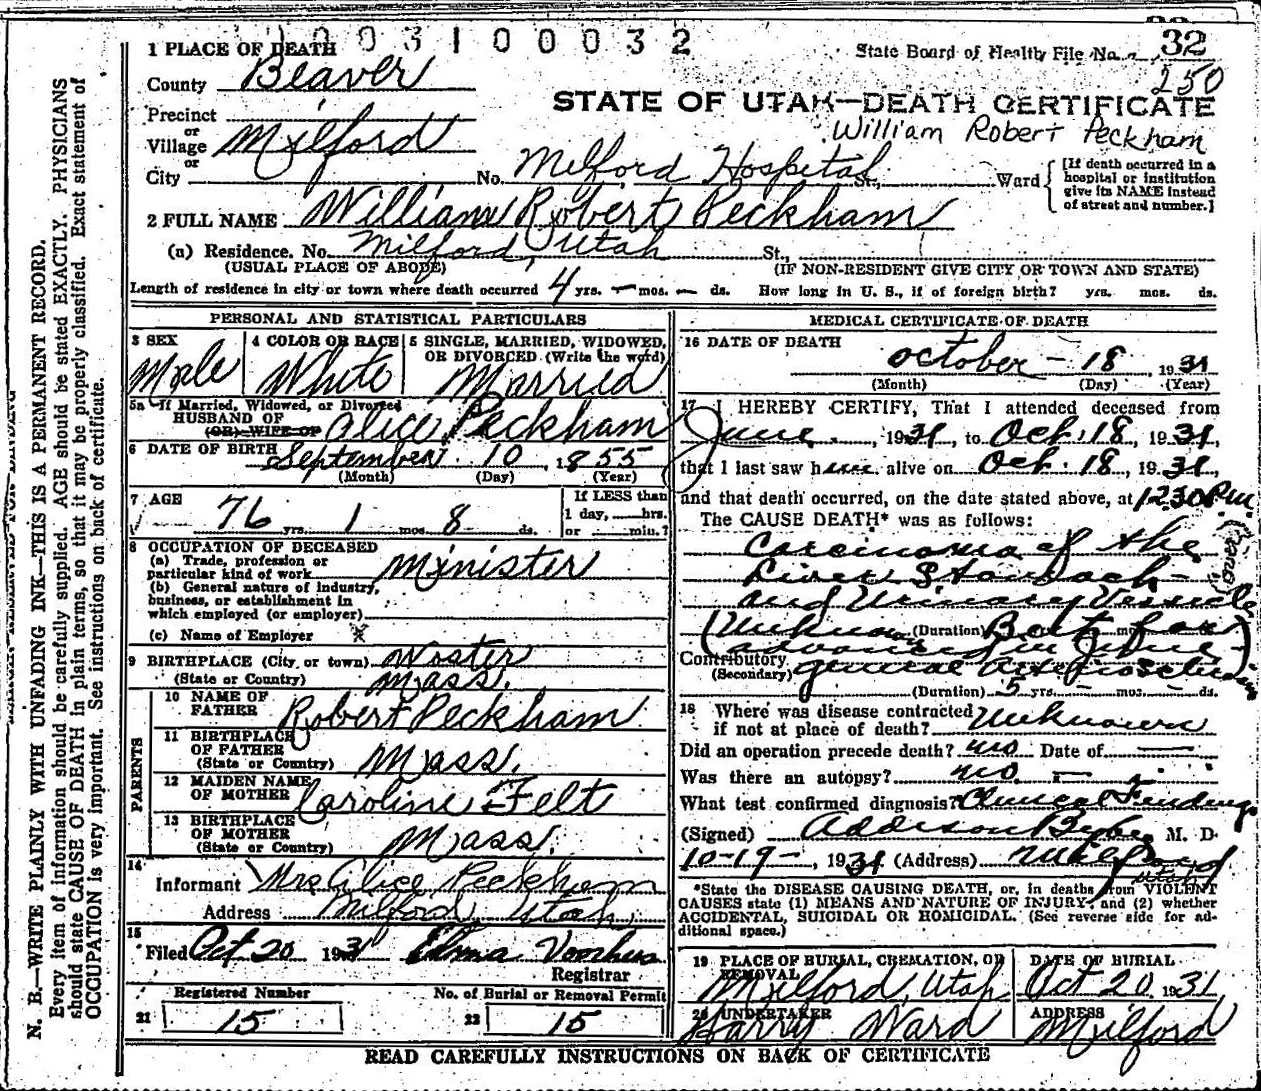 0 0 3 1 0 0 0 3 2
State Board of Health File No. 32
250
1 PLACE OF DEATH
County Beaver
STATE OF UTAH—DEATH CERTIFICATE
William Robert Peckham
Precinct
or
Village Milford
or
City No. Milford Hospital St., Ward
[If death occurred in a hospital or institution give its NAME instead of street and number.]
2 FULL NAME William Robert Peckham
(a) Residence. No. Milford, Utah St.,
(USUAL PLACE OF ABODE) (IF NON-RESIDENT GIVE CITY OR TOWN AND STATE)
Length of residence in city or town where death occurred 4 yrs. — mos. — ds. How long in U. S., if of foreign birth? yrs. mos. ds.
PERSONAL AND STATISTICAL PARTICULARS
3 SEX
Male
4 COLOR OR RACE
White
5 SINGLE, MARRIED, WIDOWED, OR DIVORCED (Write the word)
Married
5a If Married, Widowed, or Divorced
HUSBAND OF
(OR) WIFE OF
Alice Peckham
6 DATE OF BIRTH September 10, 1855
(Month) (Day) (Year)
7 AGE
76 yrs. 1 mos. 8 ds.
If LESS than
1 day, hrs.
or min.?
8 OCCUPATION OF DECEASED
(a) Trade, profession or
particular kind of work Minister
(b) General nature of industry,
business, or establishment in
which employed (or employer)
(c) Name of Employer
9 BIRTHPLACE (City, or town) Woster
(State or Country) Mass.
PARENTS
10 NAME OF
FATHER Robert Peckham
11 BIRTHPLACE
OF FATHER
(State or Country) Mass.
12 MAIDEN NAME
OF MOTHER Caroline Felt
13 BIRTHPLACE
OF MOTHER
(State or Country) Mass.
14
Informant Mrs Alice Peckham
Address Milford, Utah,
15
Filed Oct 20 1931 Elma Voorhus
Registrar
Registered Number
21 15
No. of Burial or Removal Permit
22 15
MEDICAL CERTIFICATE OF DEATH
16 DATE OF DEATH
October – 18, 1931
(Month) (Day) (Year)
17 I HEREBY CERTIFY, That I attended deceased from
June, 1931, to Oct. 18, 1931,
that I last saw him alive on Oct. 18, 1931,
and that death occurred, on the date stated above, at 12:30 P.m.
The CAUSE DEATH* was as follows:
Carcinoma of the
Liver Stomach –
and Urinary Vesicle
(over)
(Unknown (Duration) But far mos. ds.
advanced in June –)
Contributory general Arteriosclerosis
(Secondary)
(Duration) 5 yrs. – mos. – ds.
18 Where was disease contracted
if not at place of death? Unknown
Did an operation precede death? no Date of —
Was there an autopsy? no –
What test confirmed diagnosis? Clinical Findings
(Signed) Addison Bybee M. D.
10-19-, 1931 (Address) Milford
Utah
*State the DISEASE CAUSING DEATH, or, in deaths from VIOLENT
CAUSES state (1) MEANS AND NATURE OF INJURY, and (2) whether
ACCIDENTAL, SUICIDAL OR HOMICIDAL. (See reverse side for ad-
ditional space.)
19 PLACE OF BURIAL, CREMATION, OR
REMOVAL
Milford, Utah
DATE OF BURIAL
Oct 20 1931
20 UNDERTAKER
Harry Ward
ADDRESS
Milford
READ CAREFULLY INSTRUCTIONS ON BACK OF CERTIFICATE
N. B.—WRITE PLAINLY WITH UNFADING INK—THIS IS A PERMANENT RECORD.
Every item of information should be carefully supplied. AGE should be stated EXACTLY. PHYSICIANS
should state CAUSE OF DEATH in plain terms, so that it may be properly classified. Exact statement of
OCCUPATION is very important. See instructions on back of certificate.